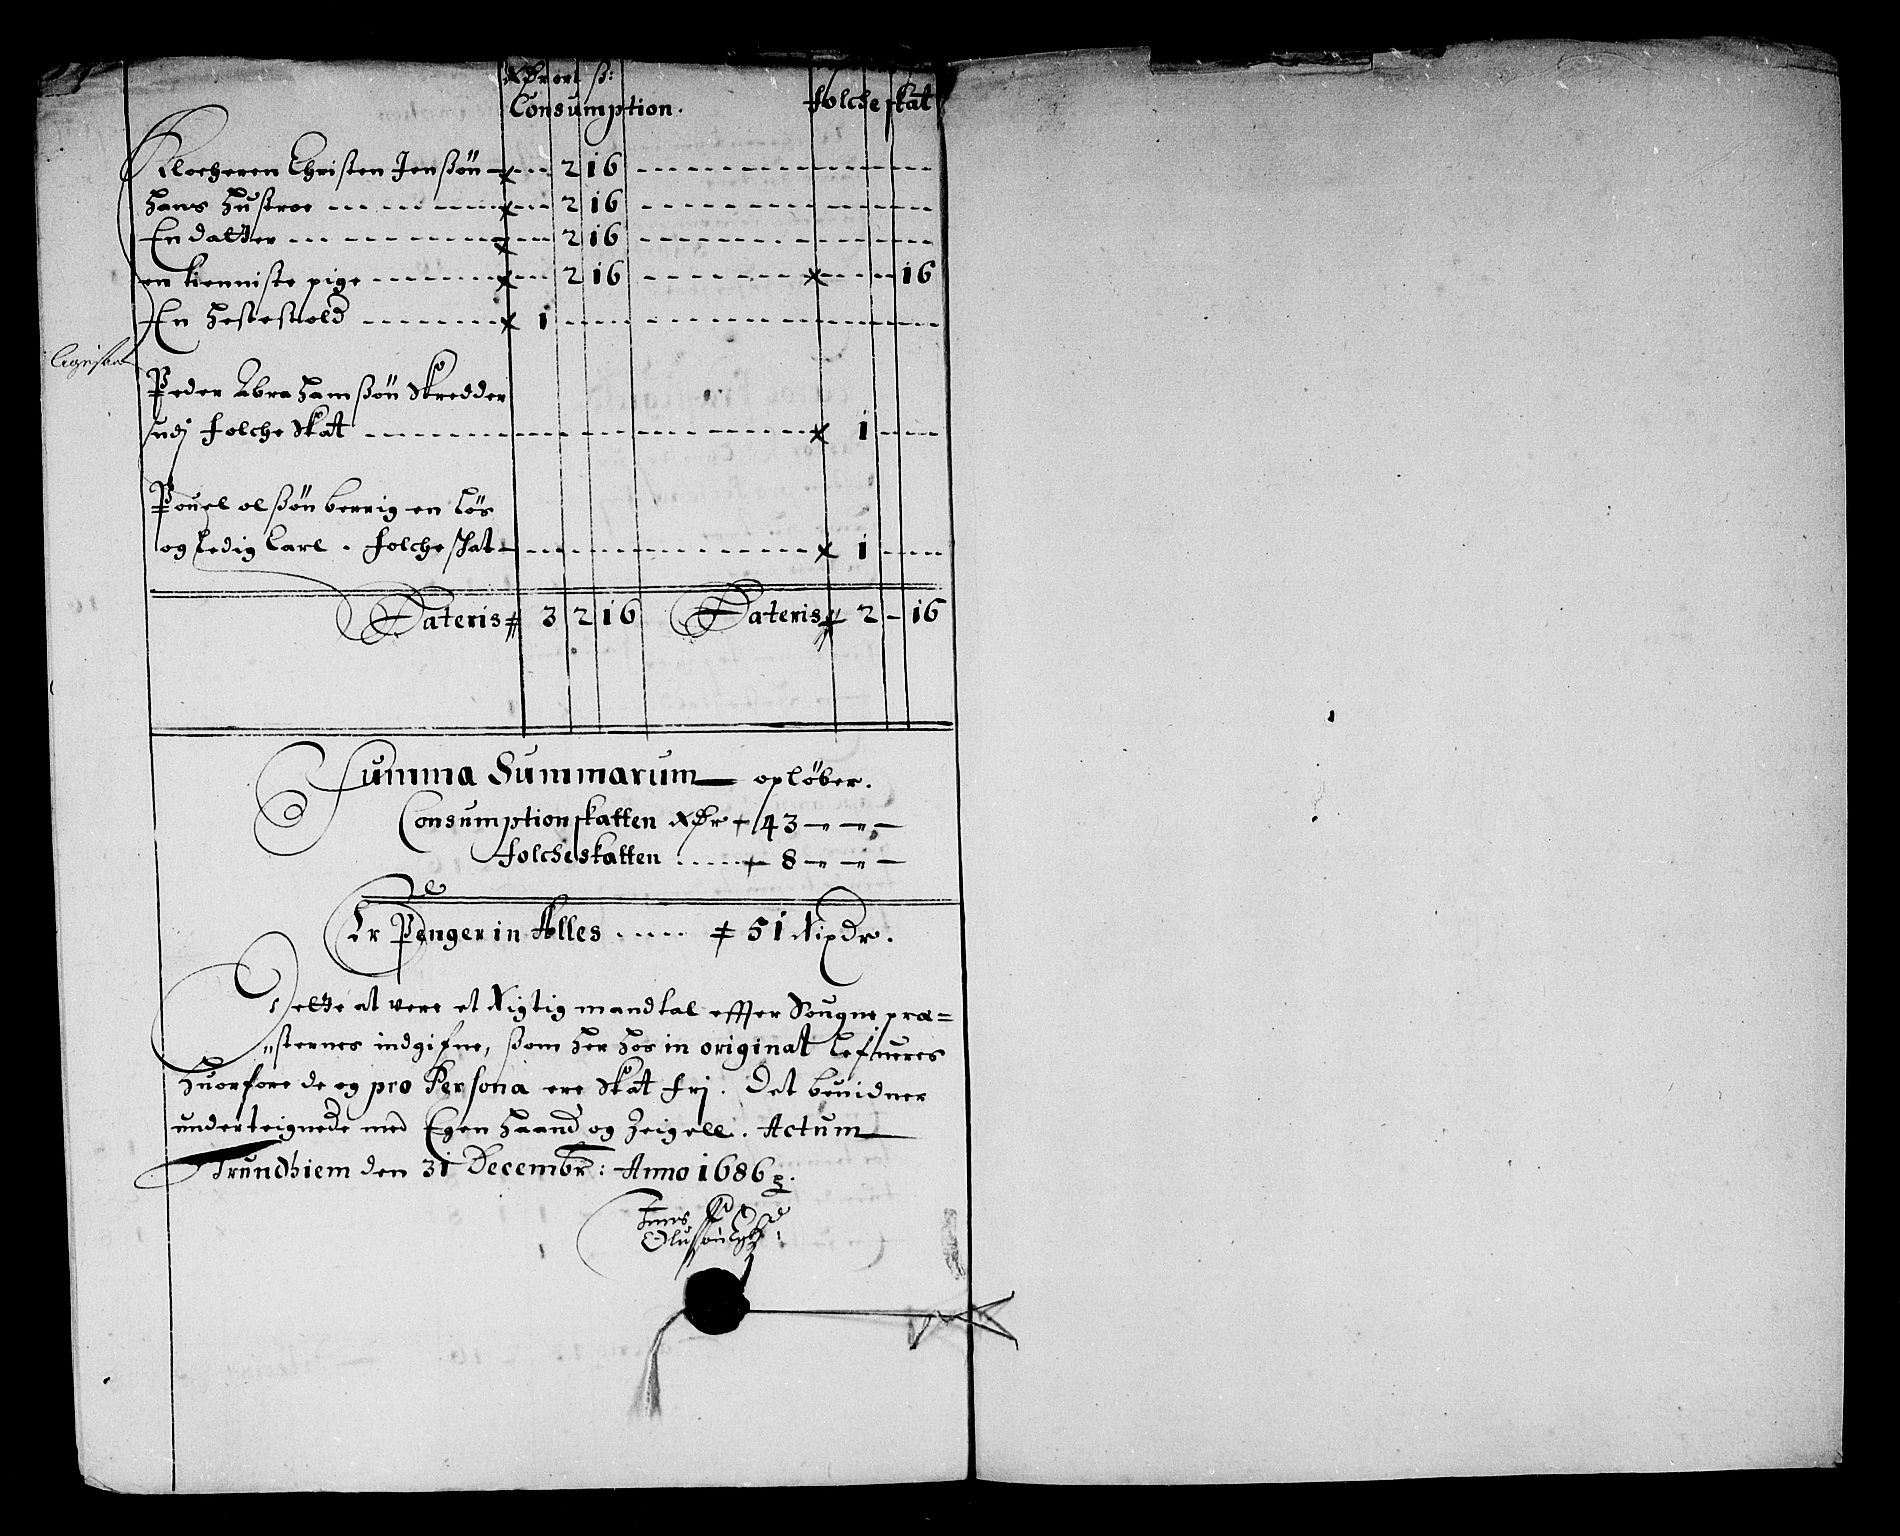 Rdr ort ß:
Consumption. folche skat
Klocheren Christen Jenssøn 2 16
Hans Hustroe 2 16
En datter 2 16
en tienniste pige 2 16 16
En Hestestold 1
Peder Abrahamssøn Skredder
udj folche Skat 1
Pouel olssøn berrig en løs
og ledig Carl. folche skat 1
Lateris 3 2 16 Lateris 2 - 16
Summa Summarum opløber.
Consumptionskatten Rdr 43 - " - " -
folcheskatten 8 - " - " -
Er Penger in Alles 51 Rixdr.
Dette at vere et Rigtig mandtal effter Sougne præ=
"sternes indgifne, ßom her hos in originat lefueres
Huorfore de og pro Persona ere Skat frj. Det beuidner
underteignede med Egen Haand og Zeigell. Actum
Trundhiem den 31 Decembr: Anno 1686